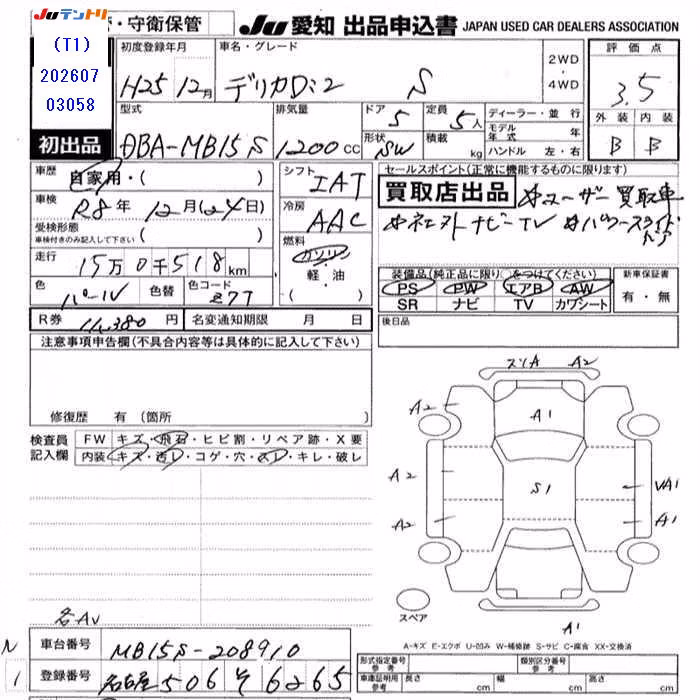 JUテントリ
・守衛保管
JU 愛知 出品申込書 JAPAN USED CAR DEALERS ASSOCIATION
(T1)
202607
03058
初度登録年月
H25 12月
車名・グレード
デリカD:2 S
2WD
・
4WD
評価点
3.5
初出品
型式
DBA-MB15S
排気量
1200 cc
ドア
5
定員
5人
形状
SW
積載
kg
ディーラー・並行
モデル年式 年
ハンドル 左・右
外装 内装
B B
車歴
自家用・( )
車検
R8年 12月(24日)
受検形態
車検付きのみ記入して下さい ( )
走行
15万0千518km
色
パール
色替
色コード
Z77
シフト
IAT
冷房
AAC
燃料
ガソリン
軽・油
( )
セールスポイント(正常に機能するものに限ります)
買取店出品 ユーザー買取車
社外ナビーTV パワースライドドア
装備品(純正品に限り○をつけてください)
PS PW エアB AW
SR ナビ TV カワシート
新車保証書
有・無
R券 11,380円
名変通知期限 月 日
後日品
注意事項申告欄(不具合内容等は具体的に記入して下さい)
修復歴 有(箇所 )
検査員記入欄
FW キズ・飛石・ヒビ割・リペア跡・X要
内装 キズ・汚レ・コゲ・穴・スレ・キレ・破レ
スリA A2
A2
A1
A2
S1
VA1
A2
A1
スペア
A1
各AV
A-キズ E-エクボ U-凹み W-補修跡 S-サビ C-腐食 XX-交換済
N
1
車台番号 MB15S-208910
登録番号 名古屋 506 そ 6265
形式指定番号 参考
類別区分番号 参考
車庫証明用 参考
長さ cm
幅 cm
高さ cm